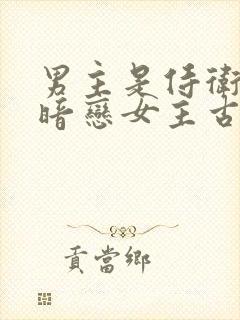 男主是侍衛
暗戀女主古
貢當鄉